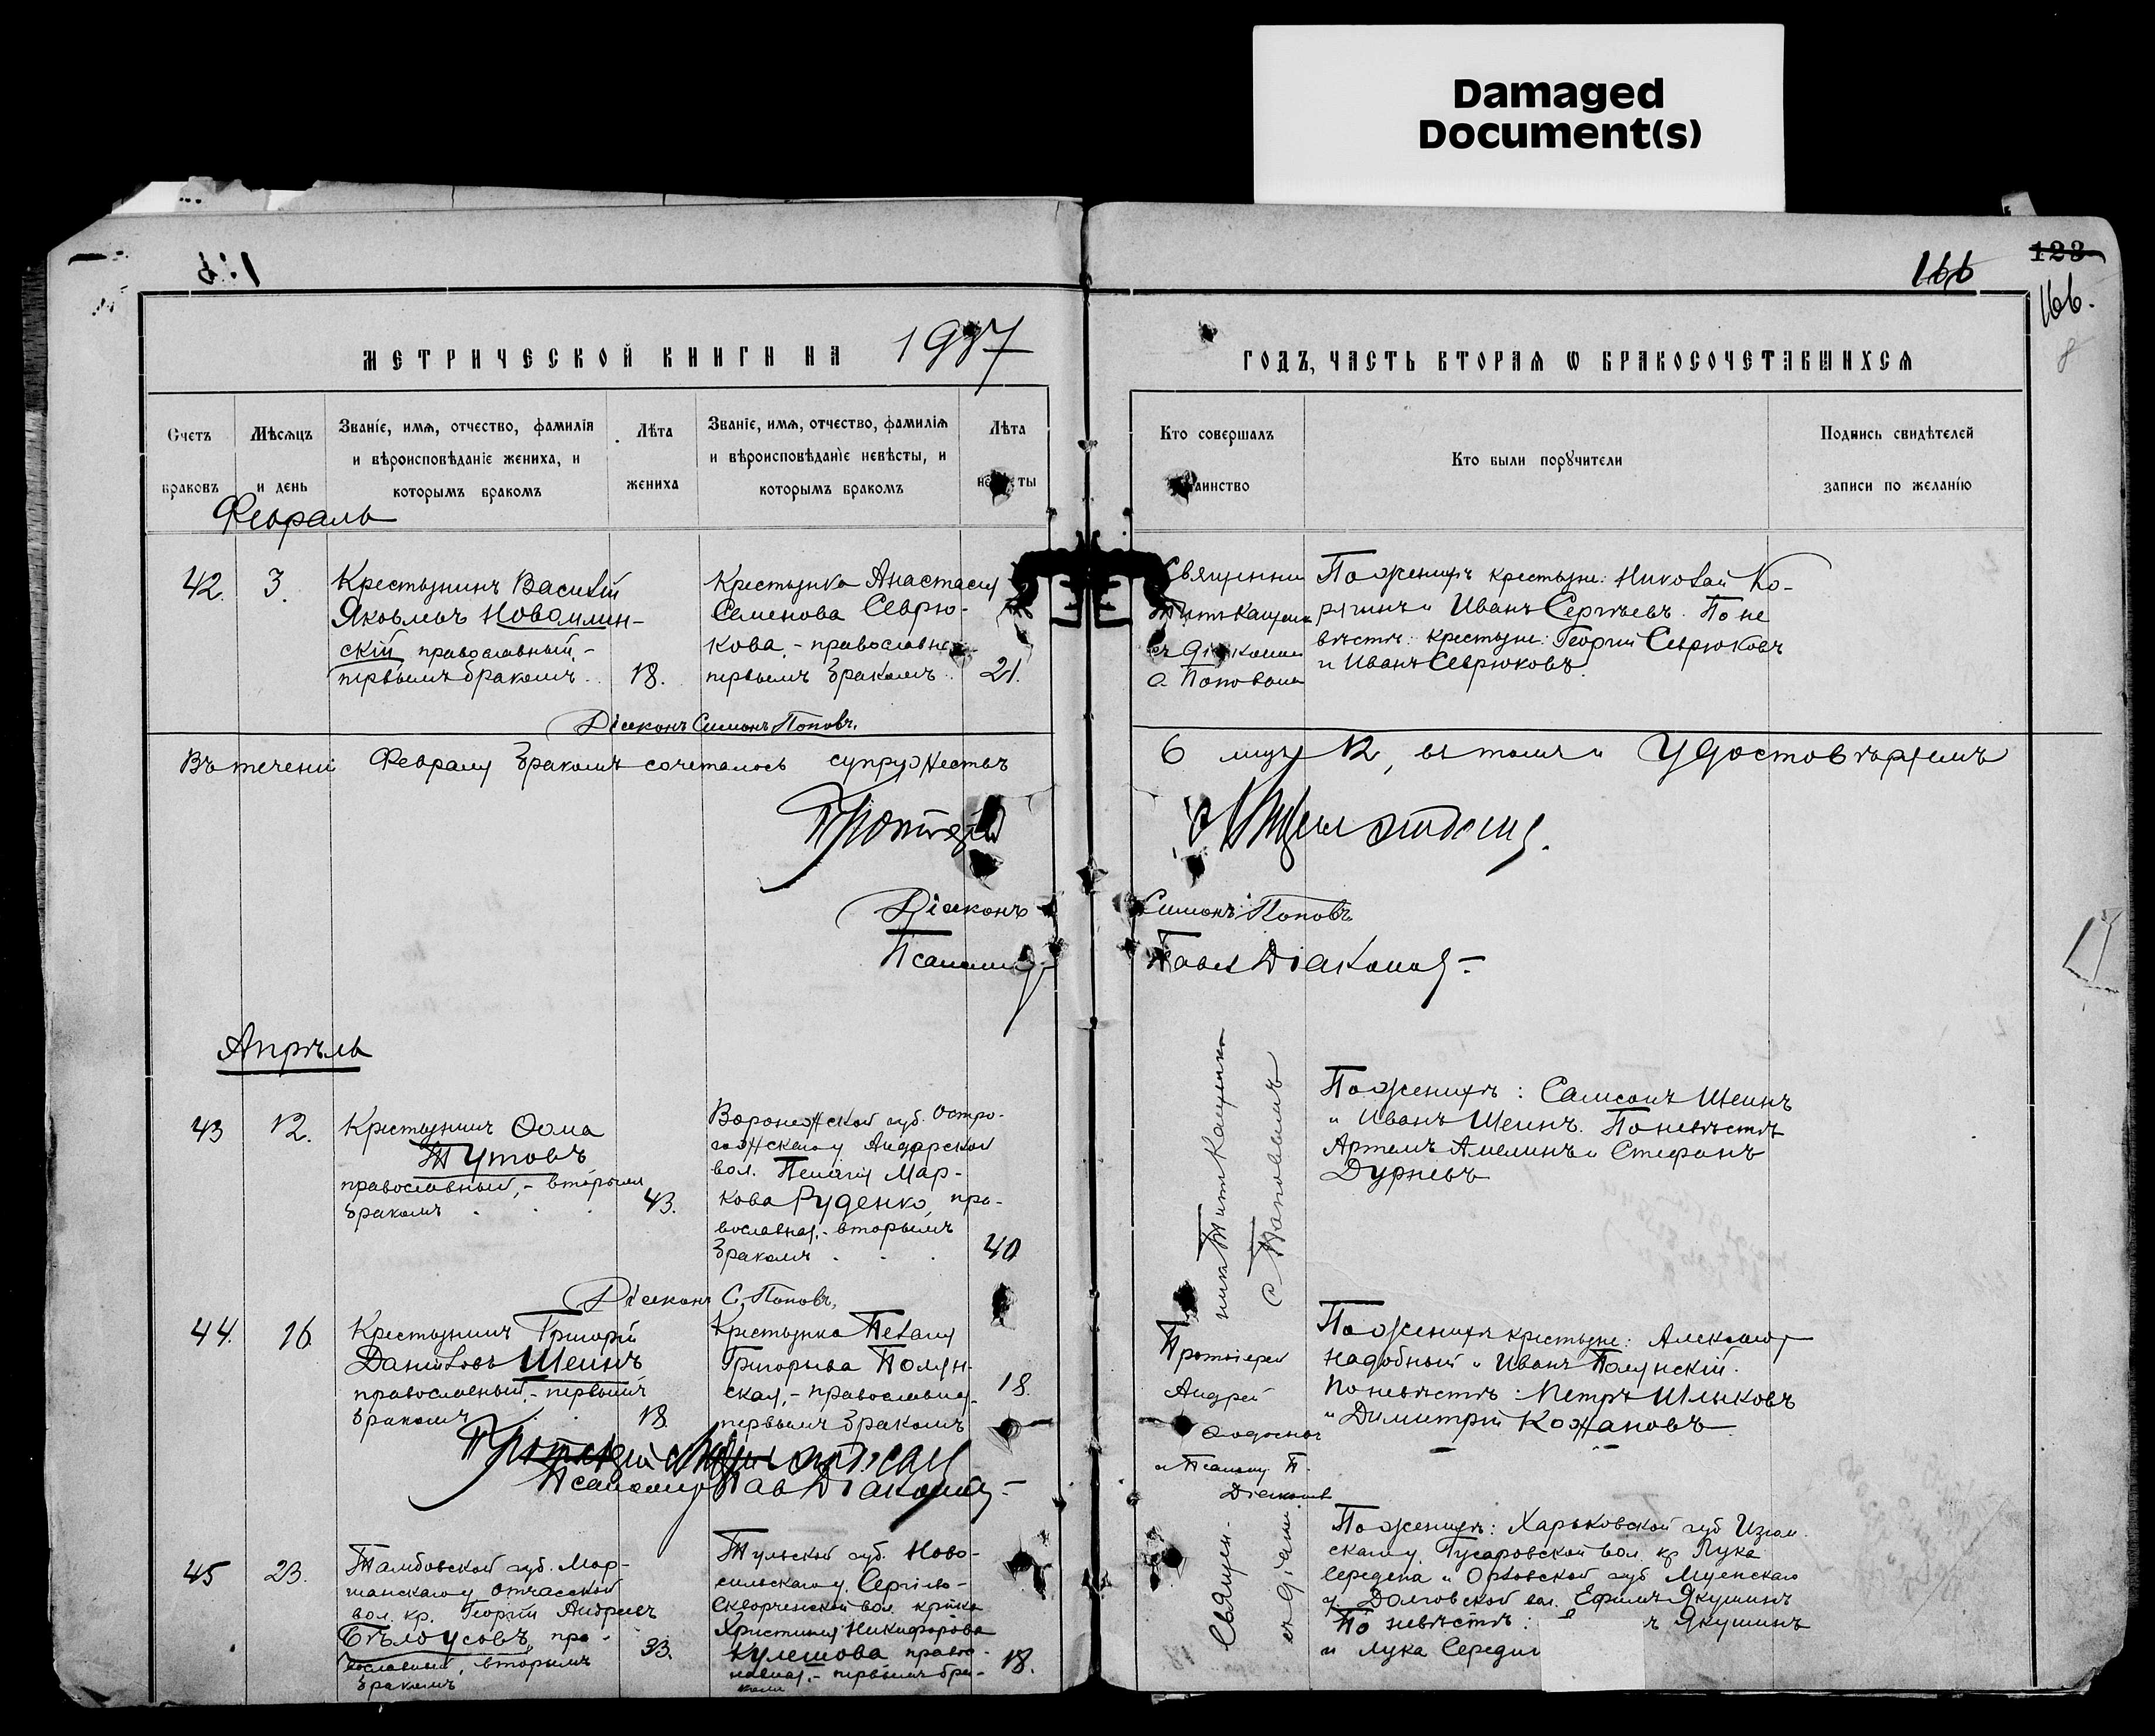 Damaged
Document(s)
166
123
166.
МЕТРИЧЕСКОЙ КНИГИ НА 1917
ГОДЪ, ЧАСТЬ ВТОРАЯ Ѡ БРАКОСОЧЕТАВШИХСЯ
Счетъ браковъ
Мѣсяцъ и день
Званіе, имя, отчество, фамилія
и вѣроисповѣданіе жениха, и
которымъ бракомъ
Лѣта жениха
Званіе, имя, отчество, фамилія
и вѣроисповѣданіе невѣсты, и
которымъ бракомъ
Лѣта
Кто совершалъ
Кто были поручители
Подпись свидѣтелей
записи по желанію
Февраль
42. 3.
Крестьянинъ Василій
Яковлевъ Новомлин-
скій православный, -
первымъ бракомъ. 18.
Крестьянка Анастасія
Семенова Севрю-
кова, - православная
первымъ бракомъ. 21.
Священни
Титъ Кащенко
съ діакономъ
С. Поповымъ
По женихѣ крестьяне: Николай Ко-
рягинъ и Иванъ Сергѣевъ. По не
вѣстѣ: крестьяне: Георгій Севрюковъ
и Иванъ Севрюковъ.
Діаконъ Симонъ Поповъ.
Въ теченіи Февраля бракомъ сочеталось супружествъ
12, въ томъ и удостовѣряемъ
Протоіерей
Діаконъ Симонъ Поповъ
Павел Діаконов
Апрѣль
43 12.
Крестьянинъ Ѳома
Тутовъ
православный, - вторымъ
бракомъ 43.
Воронежской губ. Остро-
гожскаго у. Айдарской
вол. Пелагія Мар-
кова Руденко, пра-
вославная, - вторымъ
бракомъ 40
Титъ Кащенко
С Поповымъ
По женихѣ: Самсонъ Шеинъ
и Иванъ Шеинъ. По невѣстѣ
Артемъ Амелинъ и Стефанъ
Дурневъ
Діаконъ С. Поповъ.
44. 16
Крестьянинъ Григорій
Даниловъ Шеинъ
православный, - первымъ
бракомъ 18.
Крестьянка Пелагія
Григорьева Полян-
ская, - православная,
первымъ бракомъ 18.
Протоіерей
Андрей
и Псаломщ. П.
Діаконовъ
По женихѣ крестьяне: Александръ
Надобный и Иванъ Полянскій.
По невѣстѣ: Петръ Шлыковъ
и Димитрій Кожановъ.
Протоіерей
Псаломщ Пав Діаконов
45 23.
Тамбовской губ. Мор-
шанскаго у. Отъясской
вол. кр. Георгій Андреевъ
Бѣлоусовъ, пра-
вославный, вторымъ
бракомъ 33.
Тульской губ. Ново-
сильскаго у. Сергіево-
Скворченской вол. крѣка
Христина Никифорова
Кулешова правос-
лавная, - первымъ бра-
комъ 18.
Священ-
съ діакон
По женихѣ: Харьковской губ Изюм.
скаго у. Гусаровской вол. кр Лука
Середена и Орловской губ Мценскаго
у. Долговской вол. Ефимъ Якушинъ
По невѣстѣ: ъ Якушинъ
и Лука Середин